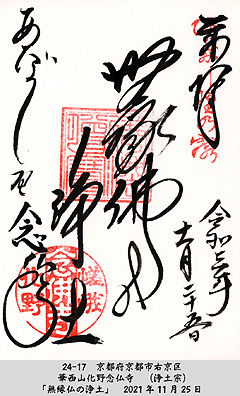 奉拝
令和三年
十一月二十五日
無縁佛の
浄土
あだし野
念佛寺
24-17 京都府京都市右京区
華西山化野念仏寺 (浄土宗)
「無縁仏の浄土」 2021年11月25日